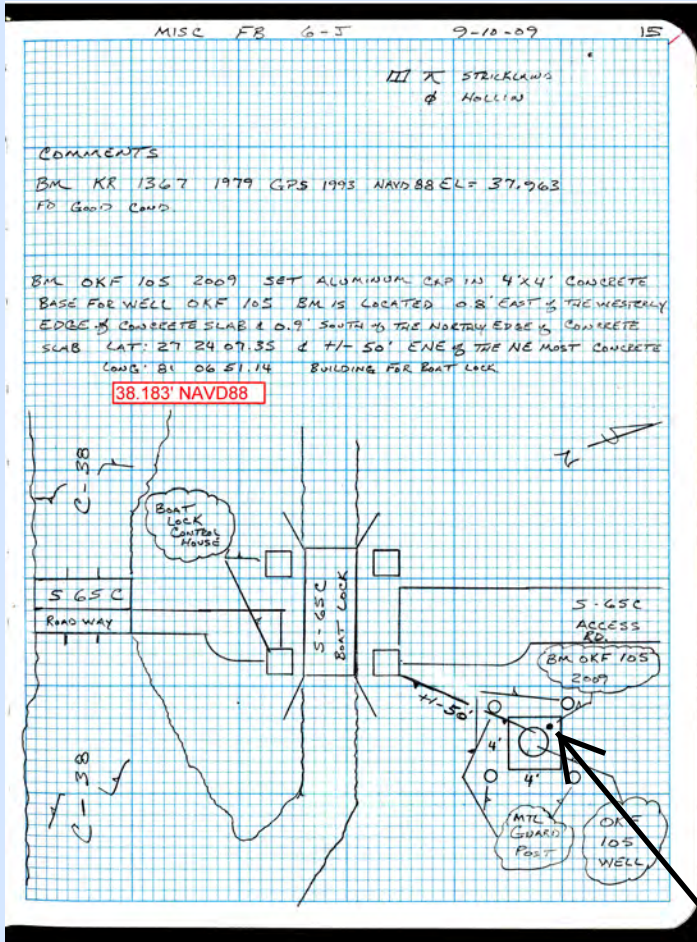 MISC FB 6-J 9-10-09 15
π STRICKLAND
φ HOLLIN
COMMENTS
BM KR 1367 1979 GPS 1993 NAVD 88 EL = 37.963
FD GOOD COND.
BM OKF 105 2009 SET ALUMINUM CAP IN 4'X4' CONCRETE
BASE FOR WELL OKF 105 BM IS LOCATED 0.8' EAST of THE WESTERLY
EDGE of CONCRETE SLAB & 0.9' SOUTH of THE NORTHLY EDGE of CONCRETE
SLAB LAT: 27 24 07.35 & +/- 50' ENE of THE NE MOST CONCRETE
LONG: 81 06 51.14 BUILDING FOR BOAT LOCK
38.183' NAVD88
C-38
BOAT
LOCK
CONTROL
HOUSE
S 65 C
ROAD WAY
S-65C
BOAT LOCK
S-65C
ACCESS
RD.
BM OKF 105
2009
+/-50'
4'
4'
C-38
MTL
GUARD
POST
OKF
105
WELL